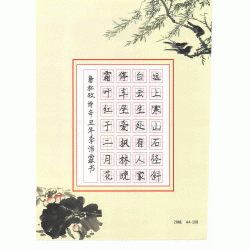 远上寒山石径斜
白云生处有人家
停车坐爱枫林晚
霜叶红于二月花
杜牧诗 丑年李沛霖书